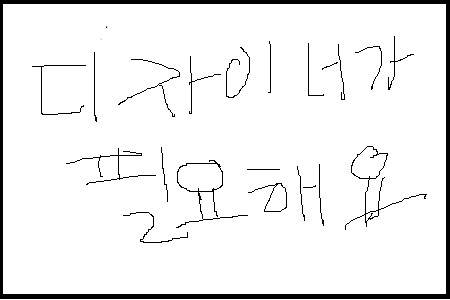 디자이너가
필요해요